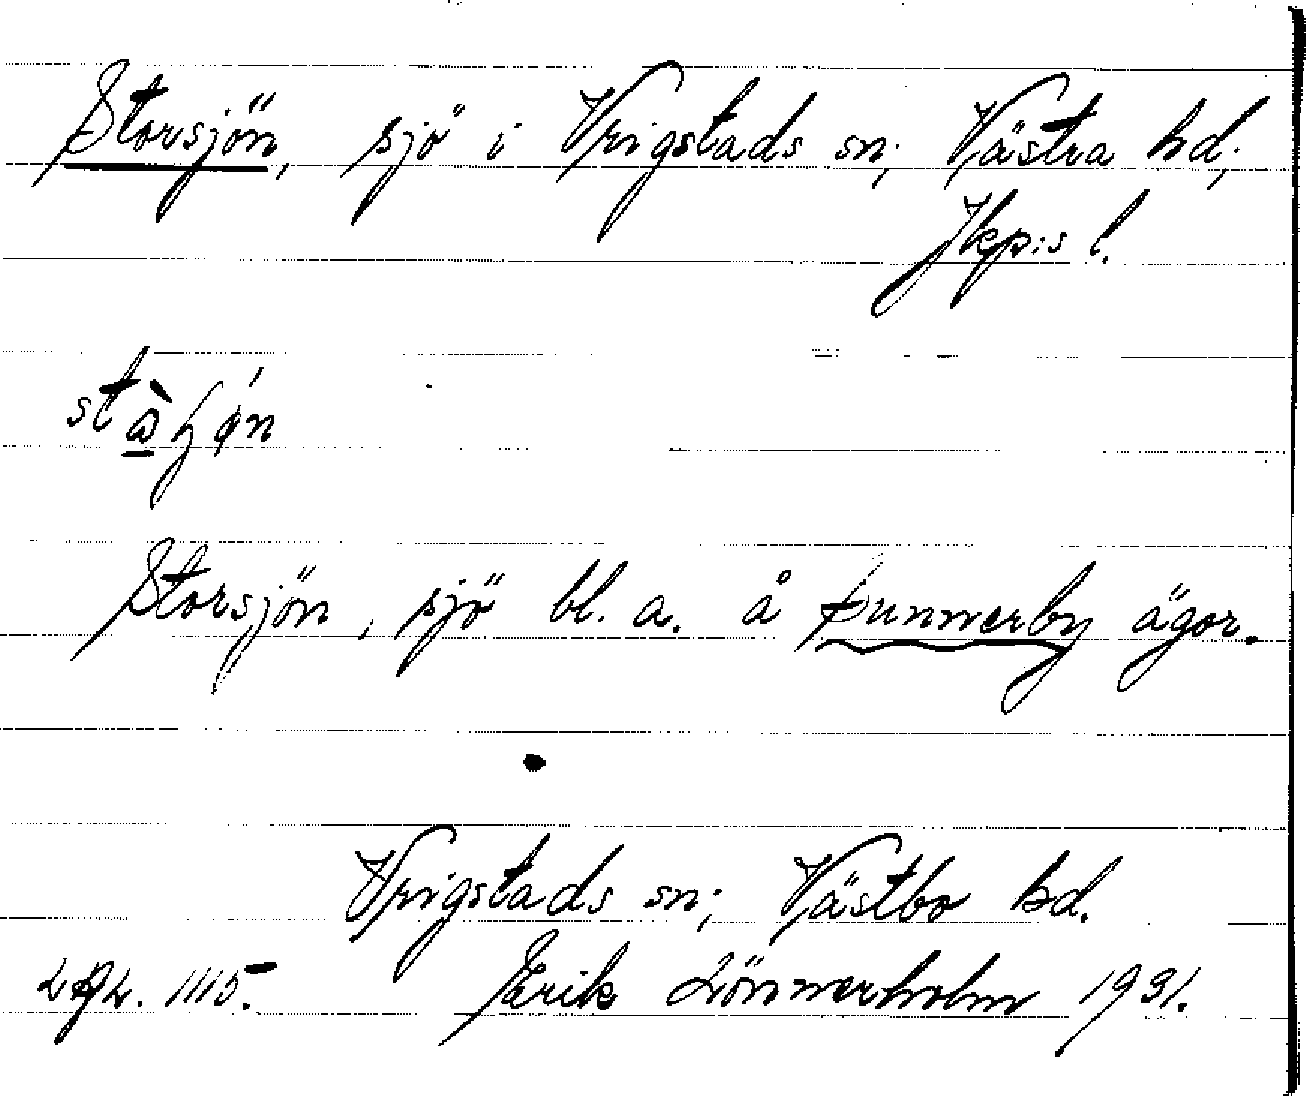 Storsjön, sjö i Vrigstads sn; Västra hd;
Jkp:s l.
Storsjön, sjö bl. a. å Sunnerby ägor.
Vrigstads sn; Västbo hd.
1115. Erik Lönnerholm 1931.